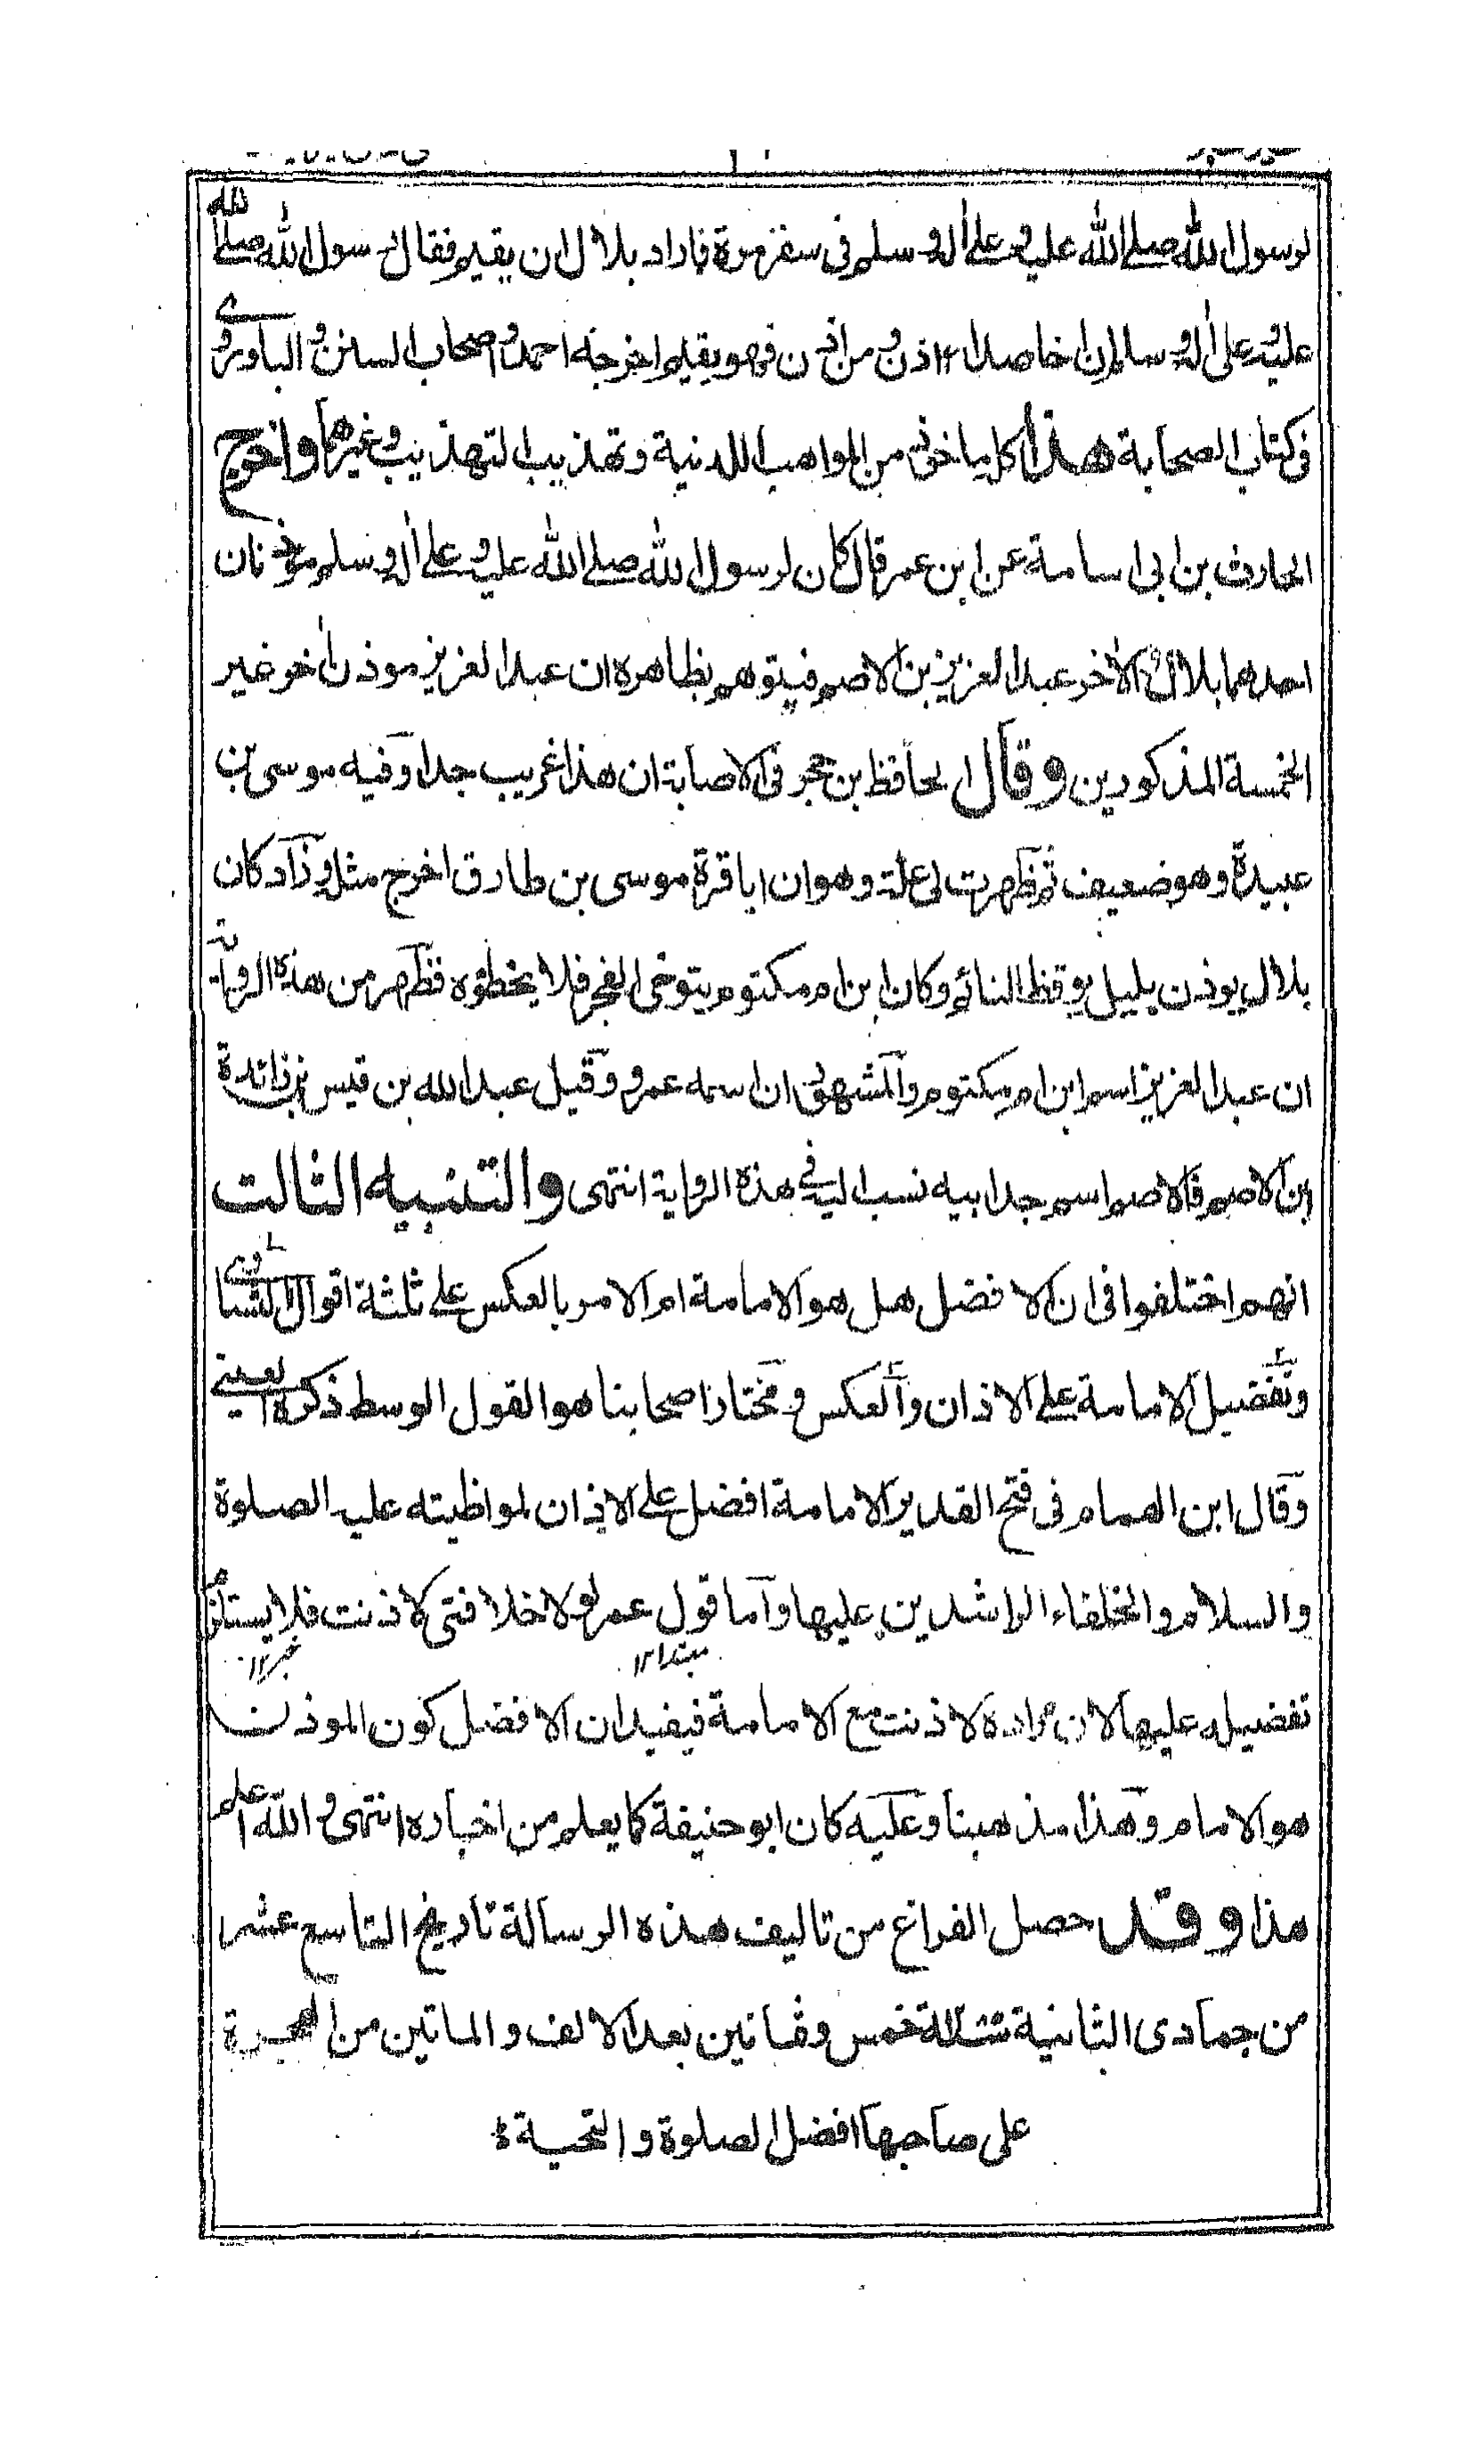 لرسول الله صلى الله عليه وعلى اله وسلم فى سفر مرة فاراد بلال ان يقيم فقال رسول الله صلى الله
عليه وعلى اله وسلم ان اخا صداء اذن ومن اذن فهو يقيم اخرجه احمد واصحاب السنن والباوردي
فى كتاب الصحابة هذا كله ماخوذ من المواهب اللدنية وتهذيب التهذيب وغيرهما واخرج
الحارث بن ابى اسامة عن ابن عمر قال كان لرسول الله صلى الله عليه وعلى اله وسلم موذنان
احدهما بلال والاخر عبد العزيز بن الاصم فيتوهم بظاهره ان عبد العزيز موذن اخر غير
الخمسة المذكورين وقال الحافظ بن حجر فى الاصابة ان هذا غريب جدا وفيه موسى بن
عبيدة وهو ضعيف ثم ظهرت لى علة وهو ان ابا قرة موسى بن طارق اخرج مثله وزاد كان
بلال يوذن بليل يوقظ النائم وكان ابن ام مكتوم يتوخى الفجر فلا يخطؤه فظهر من هذه الرواية
ان عبد العزيز اسم ابن ام مكتوم والمشهور ان اسمه عمرو وقيل عبد الله بن قيس بن زائدة
ابن الاصم فالاصم اسم جد ابيه نسب اليه فى هذه الرواية انتهى والتنبيه الثالث
انهم اختلفوا فى ان الافضل هل هو الامامة ام الامر بالعكس على ثلثة اقوال التساوى
وتفضيل الامامة على الاذان والعكس ومختار اصحابنا هو القول الوسط ذكره العينى
وقال ابن الهمام فى فتح القدير الامامة افضل على الاذان لمواظبته عليه الصلوة
والسلام والخلفاء الراشدين عليها واما قول عمر لولا خلافتى لاذنت فلا يستلزم
مبتدا١٢ خبر١٢
تفضيله عليها لان مراده لاذنت مع الامامة فيفيد ان الافضل كون الموذن
هو الامام وهذا مذهبنا وعليه كان ابو حنيفة كما يعلم من اخباره انتهى والله اعلم
هذا وقد حصل الفراغ من تاليف هذه الرسالة تاريخ التاسع عشر
من جمادى الثانية سنة خمس وثمانين بعد الالف والماتين من الهجرة
على صاحبها افضل الصلوة والتحية